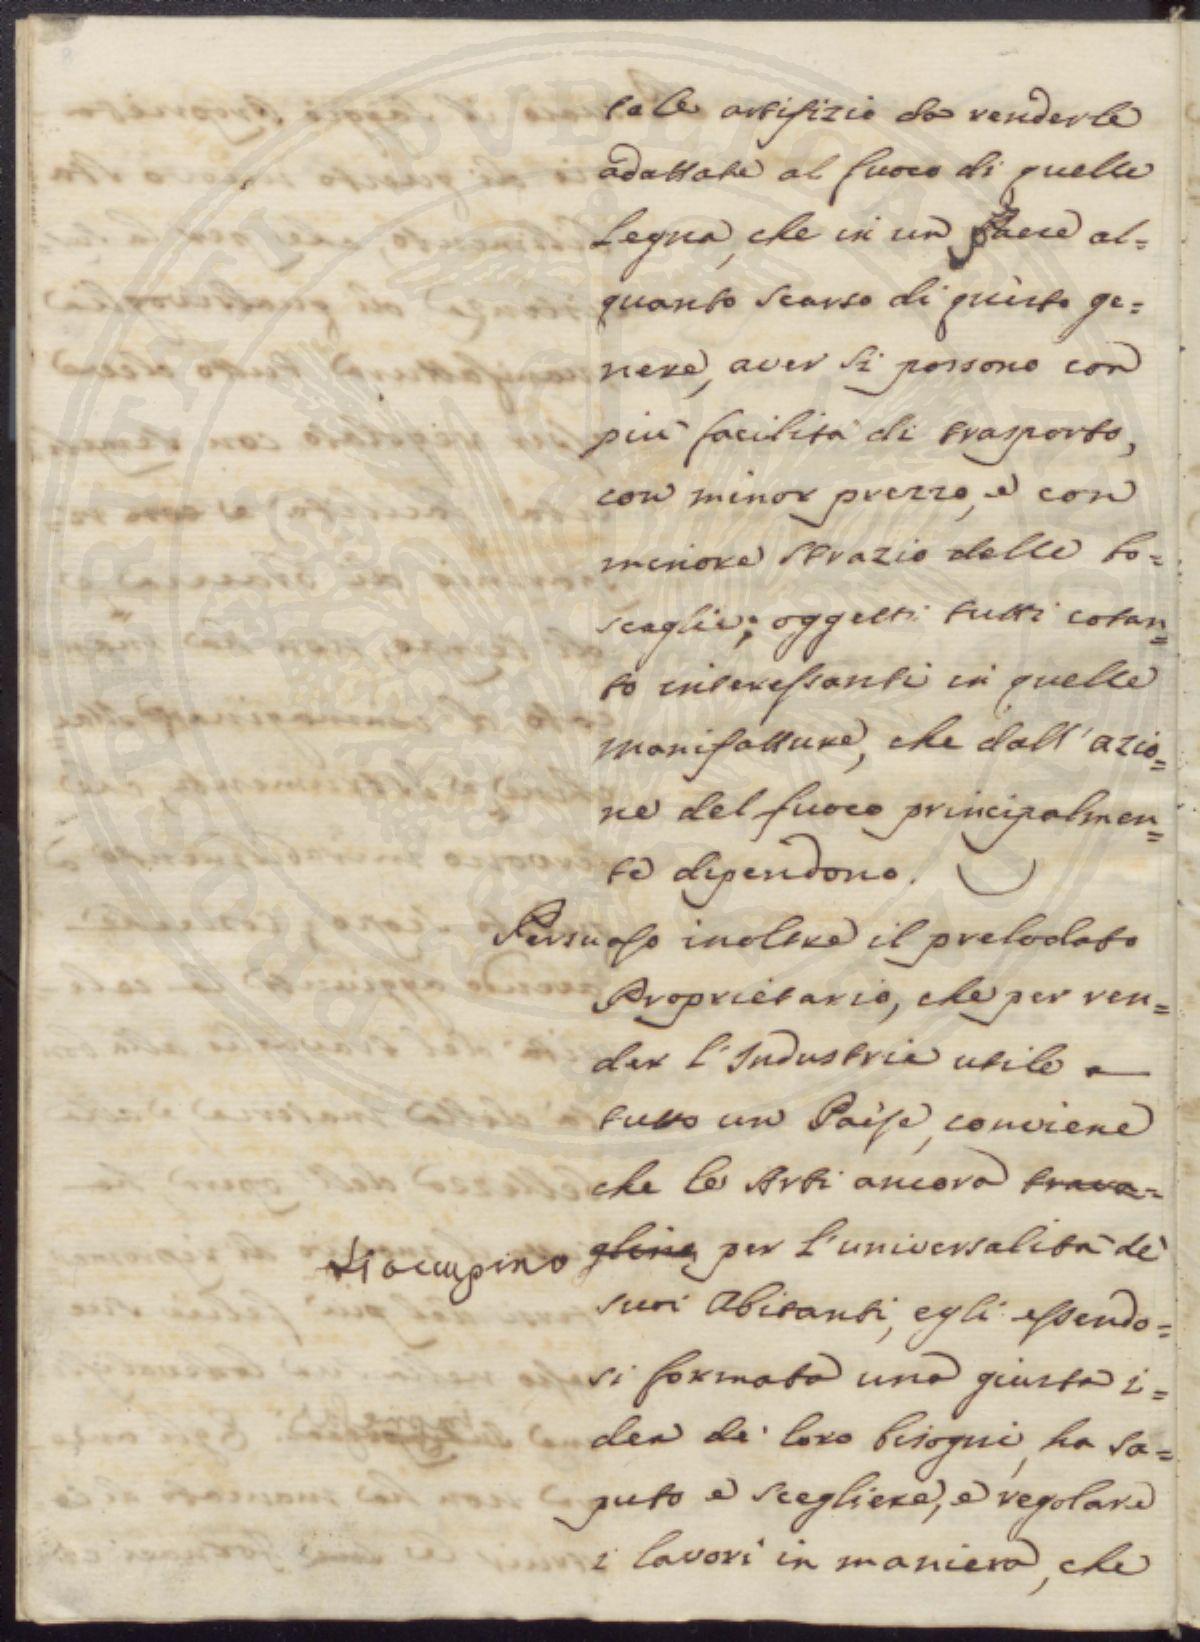 tale artifizio da renderle
adattate al fuoco di quelle
Legna, che in un Paese al=
quanto scarso di questo ge=
nere, aver si possono con
più facilità di trasporto,
con minor prezzo, e con
minore strazio delle bo=
scaglie; oggetti tutti cotan=
to interessanti in quelle
manifatture, che dall' azio=
ne del fuoco principalmen=
te dipendono.
Persuaso inoltre il prelodato
Proprietario, che per ren=
der l'Industria utile a
tutto un Paese, conviene
che le Arti ancora trava=
glino per l'universalità de'
si occupino
suoi Abitanti, egli essendo=
si formata una giusta i=
dea de' loro bisogni, ha sa=
puto e scegliere, e regolare
i lavori in maniera, che